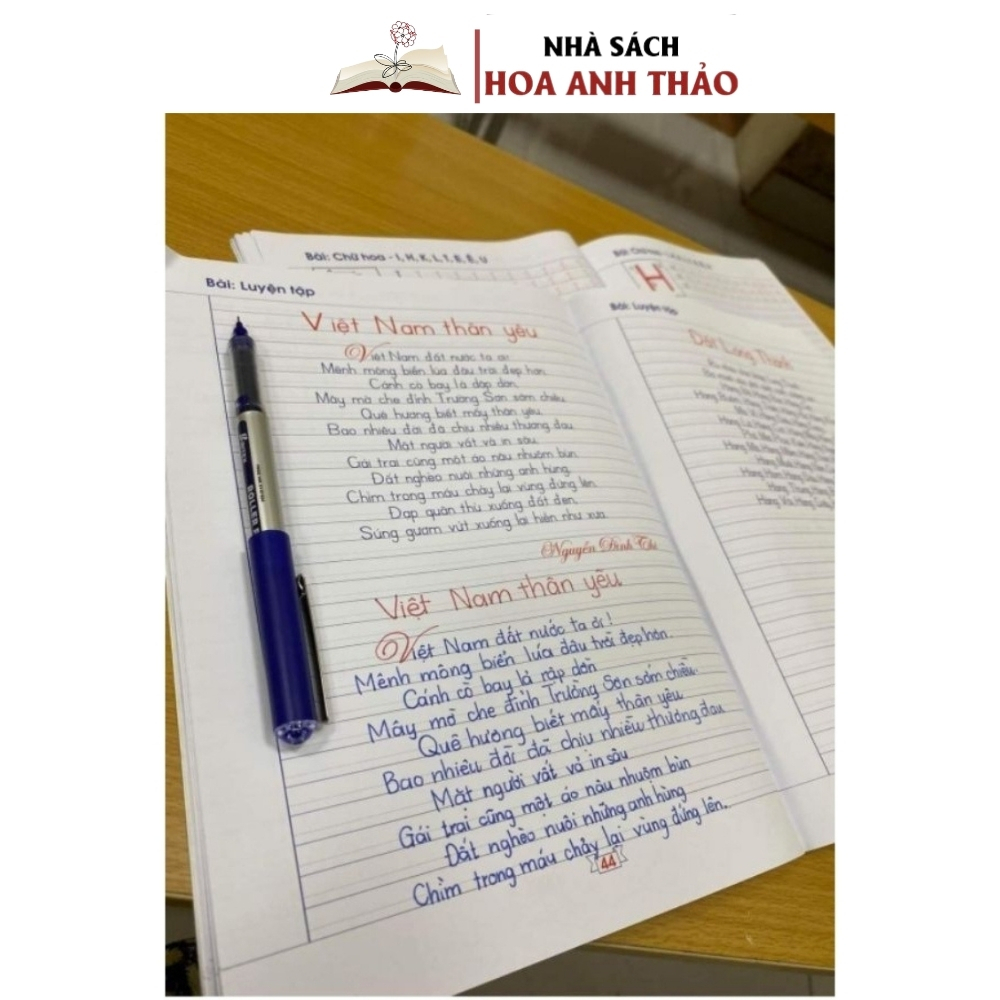 NHÀ SÁCH
HOA ANH THẢO
Bài: Chữ hoa - I, H, K, L, T, E, Ê, U
H
Bài: Luyện tập
Bài: Luyện tập
Việt Nam thân yêu
Việt Nam đất nước ta ơi
Mênh mông biển lúa đâu trời đẹp hơn
Cánh cò bay lả dập dờn
Mây mờ che đỉnh Trường Sơn sớm chiều
Quê hương biết mấy thân yêu
Bao nhiêu đời đã chịu nhiều thương đau
Mặt người vất vả in sâu
Gái trai cũng một áo nâu nhuộm bùn
Đất nghèo nuôi những anh hùng
Chìm trong máu chảy lại vùng đứng lên
Đạp quân thù xuống đất đen
Súng gươm vứt xuống lại hiền như xưa
Nguyễn Đình Thi
Việt Nam thân yêu
Việt Nam đất nước ta ơi!
Mênh mông biển lúa đâu trời đẹp hơn.
Cánh cò bay lả rập dờn
Mây mờ che đỉnh Trường Sơn sớm chiều.
Quê hương biết mấy thân yêu
Bao nhiêu đời đã chịu nhiều thương đau
Mặt người vất vả in sâu
Gái trai cũng một áo nâu nhuộm bùn
Đất nghèo nuôi những anh hùng
Chìm trong máu chảy lại vùng đứng lên.
44
Đất Long Thành
ROLLER